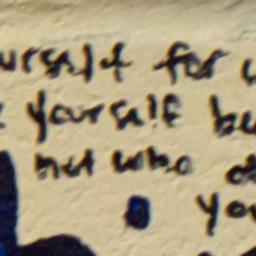 urself for
yourself bu
not who
you